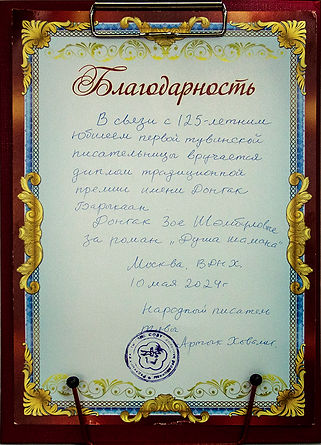 Благодарность
В связи с 125-летним
юбилеем первой тувинской
писательницы вручается
диплом традиционной
премии имени Донгак
Барыкаан
Донгак Зое
за роман „Душа шамана"
Москва, ВДНХ.
10 мая 2024г
Народный писатель
Тувы
Артык Ховалыг